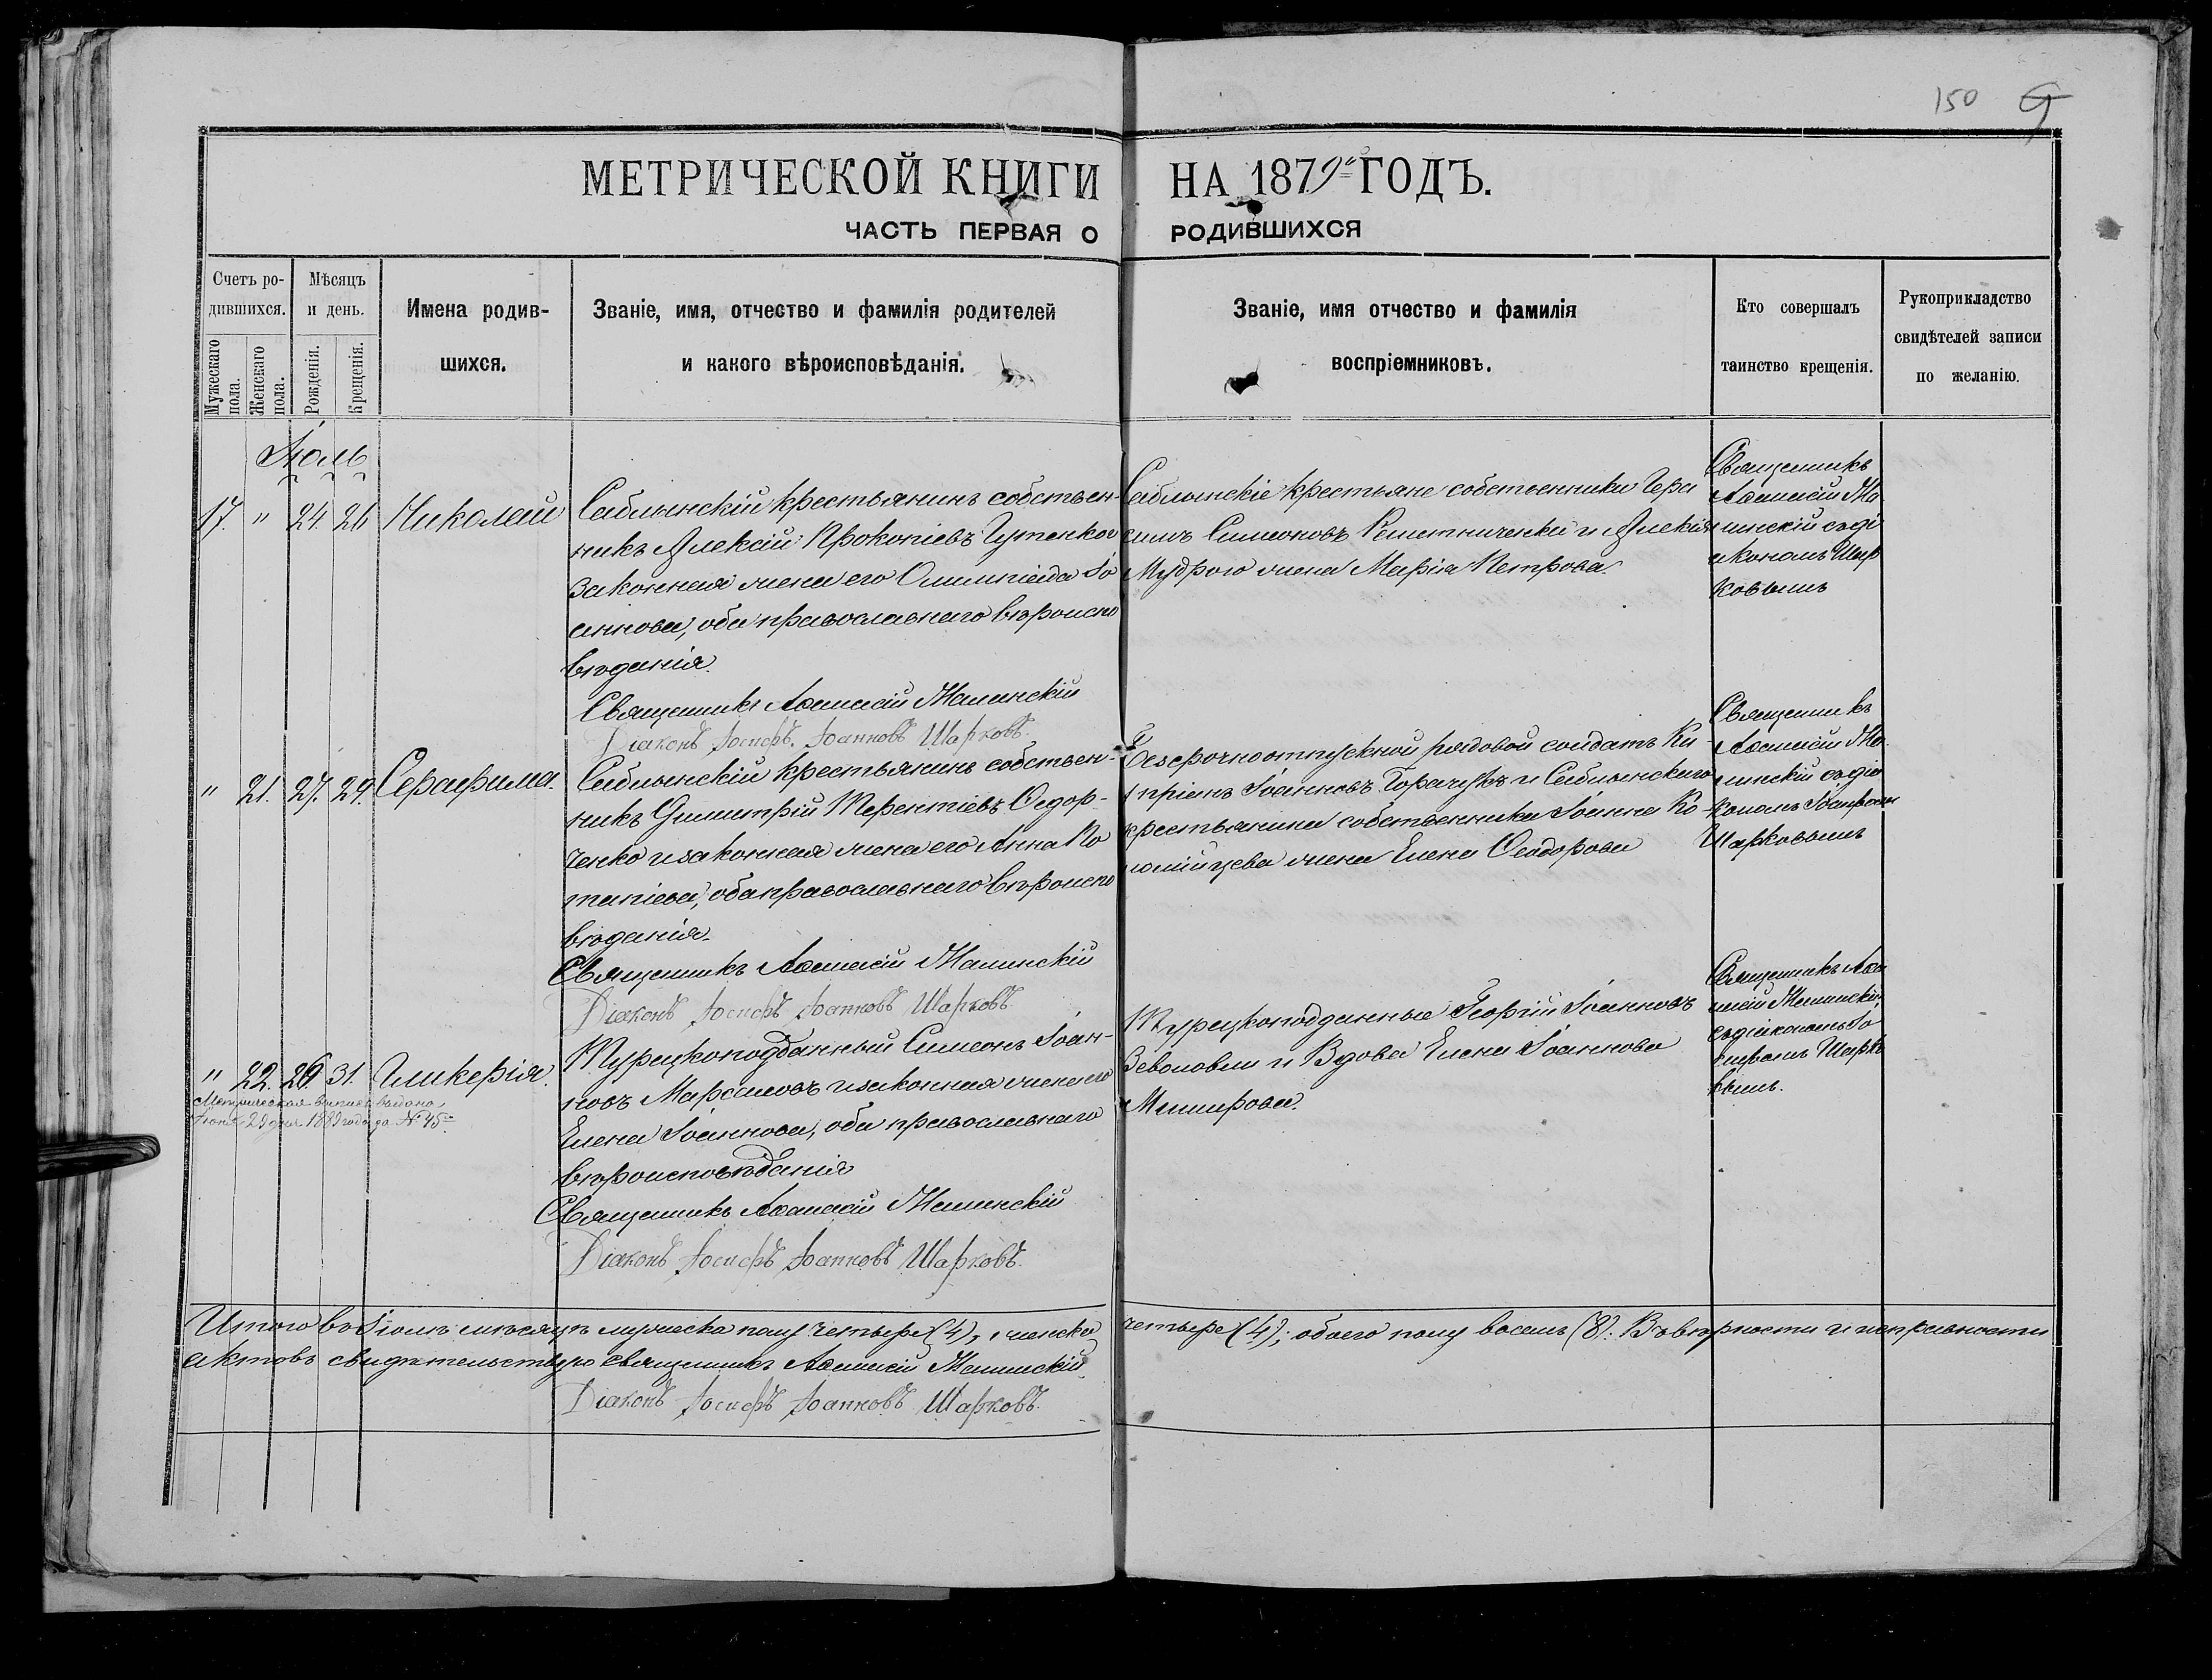 150
МЕТРИЧЕСКОЙ КНИГИ НА 1879й ГОДЪ.
ЧАСТЬ ПЕРВАЯ О РОДИВШИХСЯ
Счетъ ро-
дившихся.
Мужескаго
пола.
Женскаго
пола.
Мѣсяцъ
и день.
Рожденія.
Крещенія.
Имена родив-
шихся.
Званіе, имя, отчество и фамилія родителей
и какого вѣроисповѣданія.
Званіе, имя отчество и фамилія
воспріемниковъ.
Кто совершалъ
таинство крещенія.
Рукоприкладство
свидѣтелей записи
по желанію.
Іюль
17. " 24 26 Николай
Саблынскій крестьянинъ собствен-
никъ Алексій Прокопіевъ
законная жена его Олимпіада Іо
аннова, оба православнаго вѣроиспо
вѣданія.
Священникъ Аѳанасій Жалинскій
Діаконъ Іосифъ Іоанновъ Шарковъ
Саблынскіе крестьяне собственники Гера
симъ Симеоновъ и Алексія
Мудраго жена Марія Петрова.
Священникъ
Аѳанасій Жа
линскій съ ді
акономъ Шар
ковымъ
" 21. 27. 29. Серафима.
Саблынскій крестьянинъ собствен-
никъ Димитрій Терентіевъ Ѳедор-
ченко и законная жена его Анна По
тапіева, оба православнаго вѣроиспо
вѣданія.
Священникъ Аѳанасій Жалинскій
Діаконъ Іосифъ Іоанновъ Шарковъ
Безсрочноотпускной рядовой солдатъ Ки-
пріенъ Іоанновъ Горачукъ и Саблынскаго
крестьянина собственника Іоанна Ко-
ломійцева жена Елена Ѳеодорова
Священникъ
Аѳанасій Жа
линскій съ діа
кономъ Іосифомъ
Шарковымъ
" 22. 26 31. Гликерія.
Метрическая выпись выдана
29 дня 1889 года за № 45
Турецкоподданный Симеонъ Іоан-
новъ и законная жена его
Елена Іоаннова, оба православнаго
вѣроисповѣданія
Священникъ Аѳанасій Жалинскій
Діаконъ Іосифъ Іоанновъ Шарковъ.
Турецкоподданные Георгій Іоанновъ
и Вдова Елена Іоаннова
Священникъ Аѳа
насій Жалинскій
съ діакономъ Іо
сифомъ Шарко
вымъ.
Итого въ Іюлѣ мѣсяцѣ мужеска полу четыре (4), женска четыре (4); обоего полу восемь (8). Въ вѣрности и исправности
актовъ свидѣтельствую священникъ Аѳанасій Жалинскій.
Діаконъ Іосифъ Іоанновъ Шарковъ.